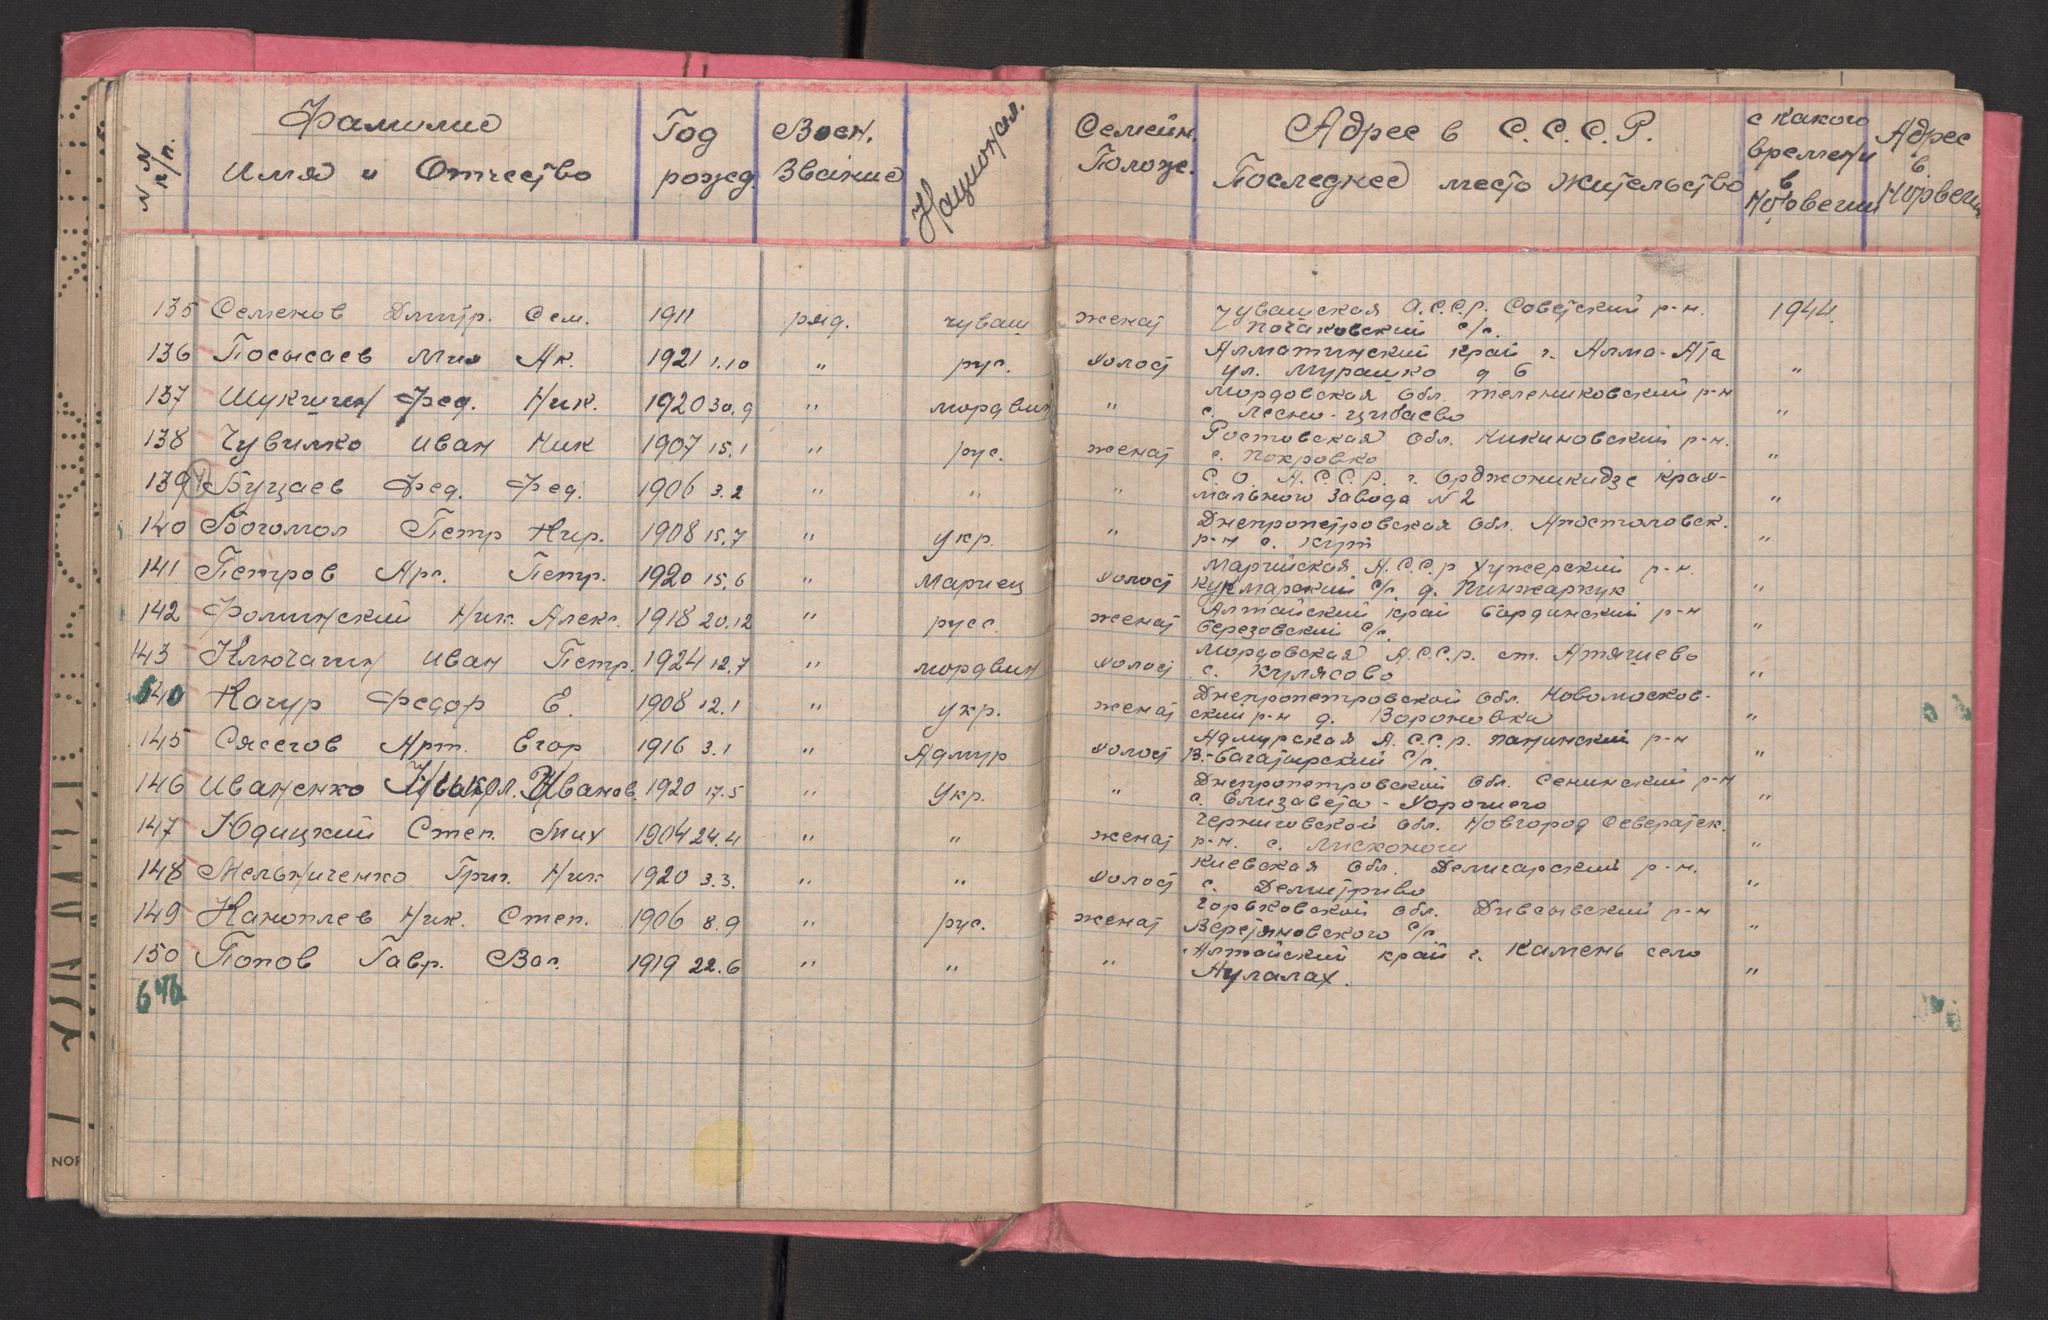 N N п/п.
Фамилие
Имя и Отчество
Год рожд
Воен. Звание
Национал.
Семейн. Полож.
Адрес в С.С.С.Р.
Последнее место жительство
с какого времени в Норвегии
Адрес в Норвегии
135 Семенов Дмитр. Сем. 1911 ряд. чуваш женат Чувашская А.С.С.Р. Советский р-н. 1944
с/с.
136 Посысаев Мих Ак. 1921 1.10 " рус. холост Алматинский край г. Алма-Ата "
ул. Мурашко д 6
137 Шукшин Фед. Ник. 1920 30.9 " мордвин " Мордовская Обл. р-н "
с. Лесно-Цибаево
138 Чувилко Иван Ник 1907 15.1 " рус. женат Ростовская Обл. Кикиновский р-н. "
с. Покровко
139 Буцаев Фед. Фед. 1906 3.2 " " " С. О. А.С.С.Р. г. Орджоникидзе крах-
мального завода N 2 "
140 Богомол Петр Кир. 1908 15.7 " укр. " Днепропетровская Обл. Апостоловск.
р-н с. Кут "
141 Петров Арс. Петр. 1920 15.6 " Мариец холост Марийская А.С.С.Р р-н.
с/с. д. "
142 Фоминский Ник. Алекс. 1918 20.12 " русс. женат Алтайский край р-н
Березовский с/с. "
143 Ключагин Иван Петр. 1924 12.7 " мордвин холост Мордовская А.С.С.Р. ст. Атяшево
с. Кулясово "
640 Качур Федор Е. 1908 12.1 " укр. женат Днепропетровской Обл. Новомосков-
ский р-н д. Вороновка "
145 Сясегов Арт. Егор 1916 3.1 " Адмур холост Адмурская А.С.С.Р. р-н
с/с. "
146 Иваненко Иванов. 1920 17.5 " Укр. " Днепропетровский Обл. Сенинский р-н
с. Елизавета-Хорошего "
147 Юдицкий Степ. Мих 1904 24.4 " " женат Черниговской Обл. Новгород Северзтск.
р-н. с. "
148 Мельниченко Григ. Ник 1920 3.3. " " холост Киевская Обл. р-н.
с. "
149 Каноплев Ник. Степ. 1906 8.9 " рус. женат Горьковской Обл. р-н
с/с "
150 Попов Гавр. Вас. 1919 22.6 " " " Алтайский край г. Камень село
Аулалах. "
646
NOR